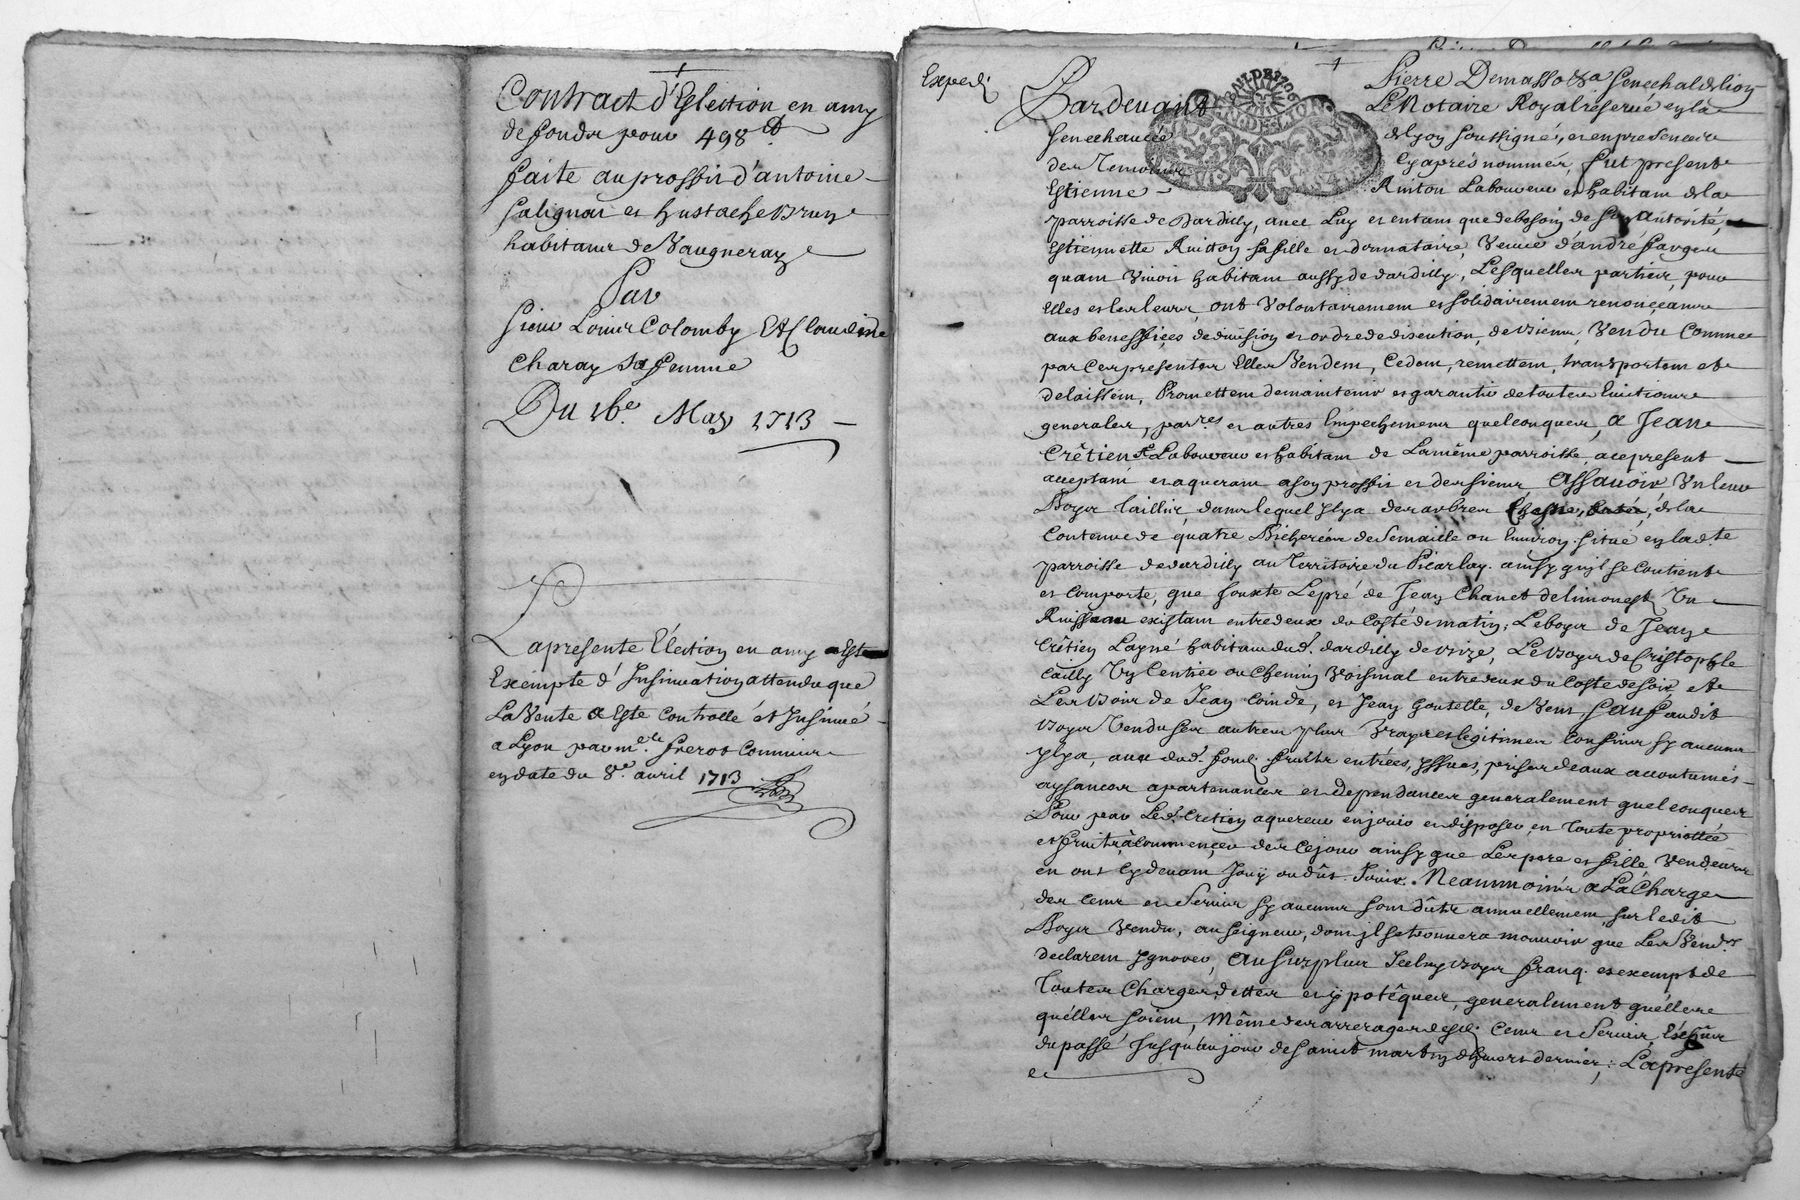 Contract d'Eslection en amy
de fonds pour 498 ₶
faite au proffit d'antoine
Salignat et hustache Brun
habitans de Vaugneray
Par
Sieur Louis Colomby Et Claudine
Charay sa femme
Du 16e. May 1713
La presente Election en amy est
Exempte d'Insinuation attendu que
La Vente a Este Controllé et Insinué
a Lyon par me. le freros Commis
en date du 8e. avril 1713
Exped.
Pierre Demasso
Senechal de lion
Pardevant Le Notaire Royal reservé en la
Senechaucée de lyon soussigné, et en presence
des Temoins Cy aprés nommés, fut present
Estienne Laboureur et habitant de la
parroisse de Dardilly, avec Luy et entant que de besoin de son autorité,
Estiennette sa fille et donnataire, Veuve d'andré
quant Vivoit habitant aussy de dardilly, Lesquelles parties, pour
Elles et les leurs, ont Volontairement et solidairement renonçeants
aux beneffices de division et ordre de discution, de bienne, Vendu Comme
par Ces presentes Elles Vendent, Cedent, remettent, transportent et
delaissent, Promettent de maintenir et garantir de toutes Evictions
generales, par.res et autres Empechemens quelconques, a Jean
Crêtien Laboureur et habitant de La même parroisse acepresent
acceptant et aquerant a son proffit et des siens, Assavoir Un
Boys Taillis, dans lequel Il y a des arbres de la
Contenue de quatre Bicherées de Semaille ou Environ situé en lad.te
parroisse de dardilly au Territoire du Picarlay. ainsy qu'il se Contient
et Comporte, que jouxte Le pré de Jean Chanet de limonest Un
Ruisseau existant entredeux du Costé de matin; Le boys de Jean
Crêtien Layné habitant dud. dardilly de bize, Le boys de Cristophle
Cailly Un Centier ou Chemin Voisinal entredeux du Coste de soir et
Les bois de Jean Coinde, et Jean goutelle, de Vent, Sauf audit
boys Vendu ses autres plus Vrays et legitimes Confins sy aucuns
Il y a, avec dud. fond. fruits entrées, Issues, prises deaux accoutumés
aysances apartenances et dependances generalement quelconques
Pour par Led. Cretien aquereur en jouir et disposer en Toute propriettée
et fruits, à Commençer des Ce jour ainsy que Les pere et fille Vendeurs
en ont Cy devant Jouÿ ou dûs Jouir. Neanmoins a La Charge
des Cens et Servis sy aucuns sont dûts annuellement sur ledit
Boys Vendu, au Seigneur, dont il se trouvera mouvoir que Les Vend.rs
declarent Ignorer, au surplus Icelluy boys franq. et exempt de
Toutes Charges, dettes et Ypotêques, generalement quelles
quelles soient, Même des arrerages desd. Cens et Servis, Eschus
du passé Jusqu'au jour de saint martin dhivert dernier; La presente